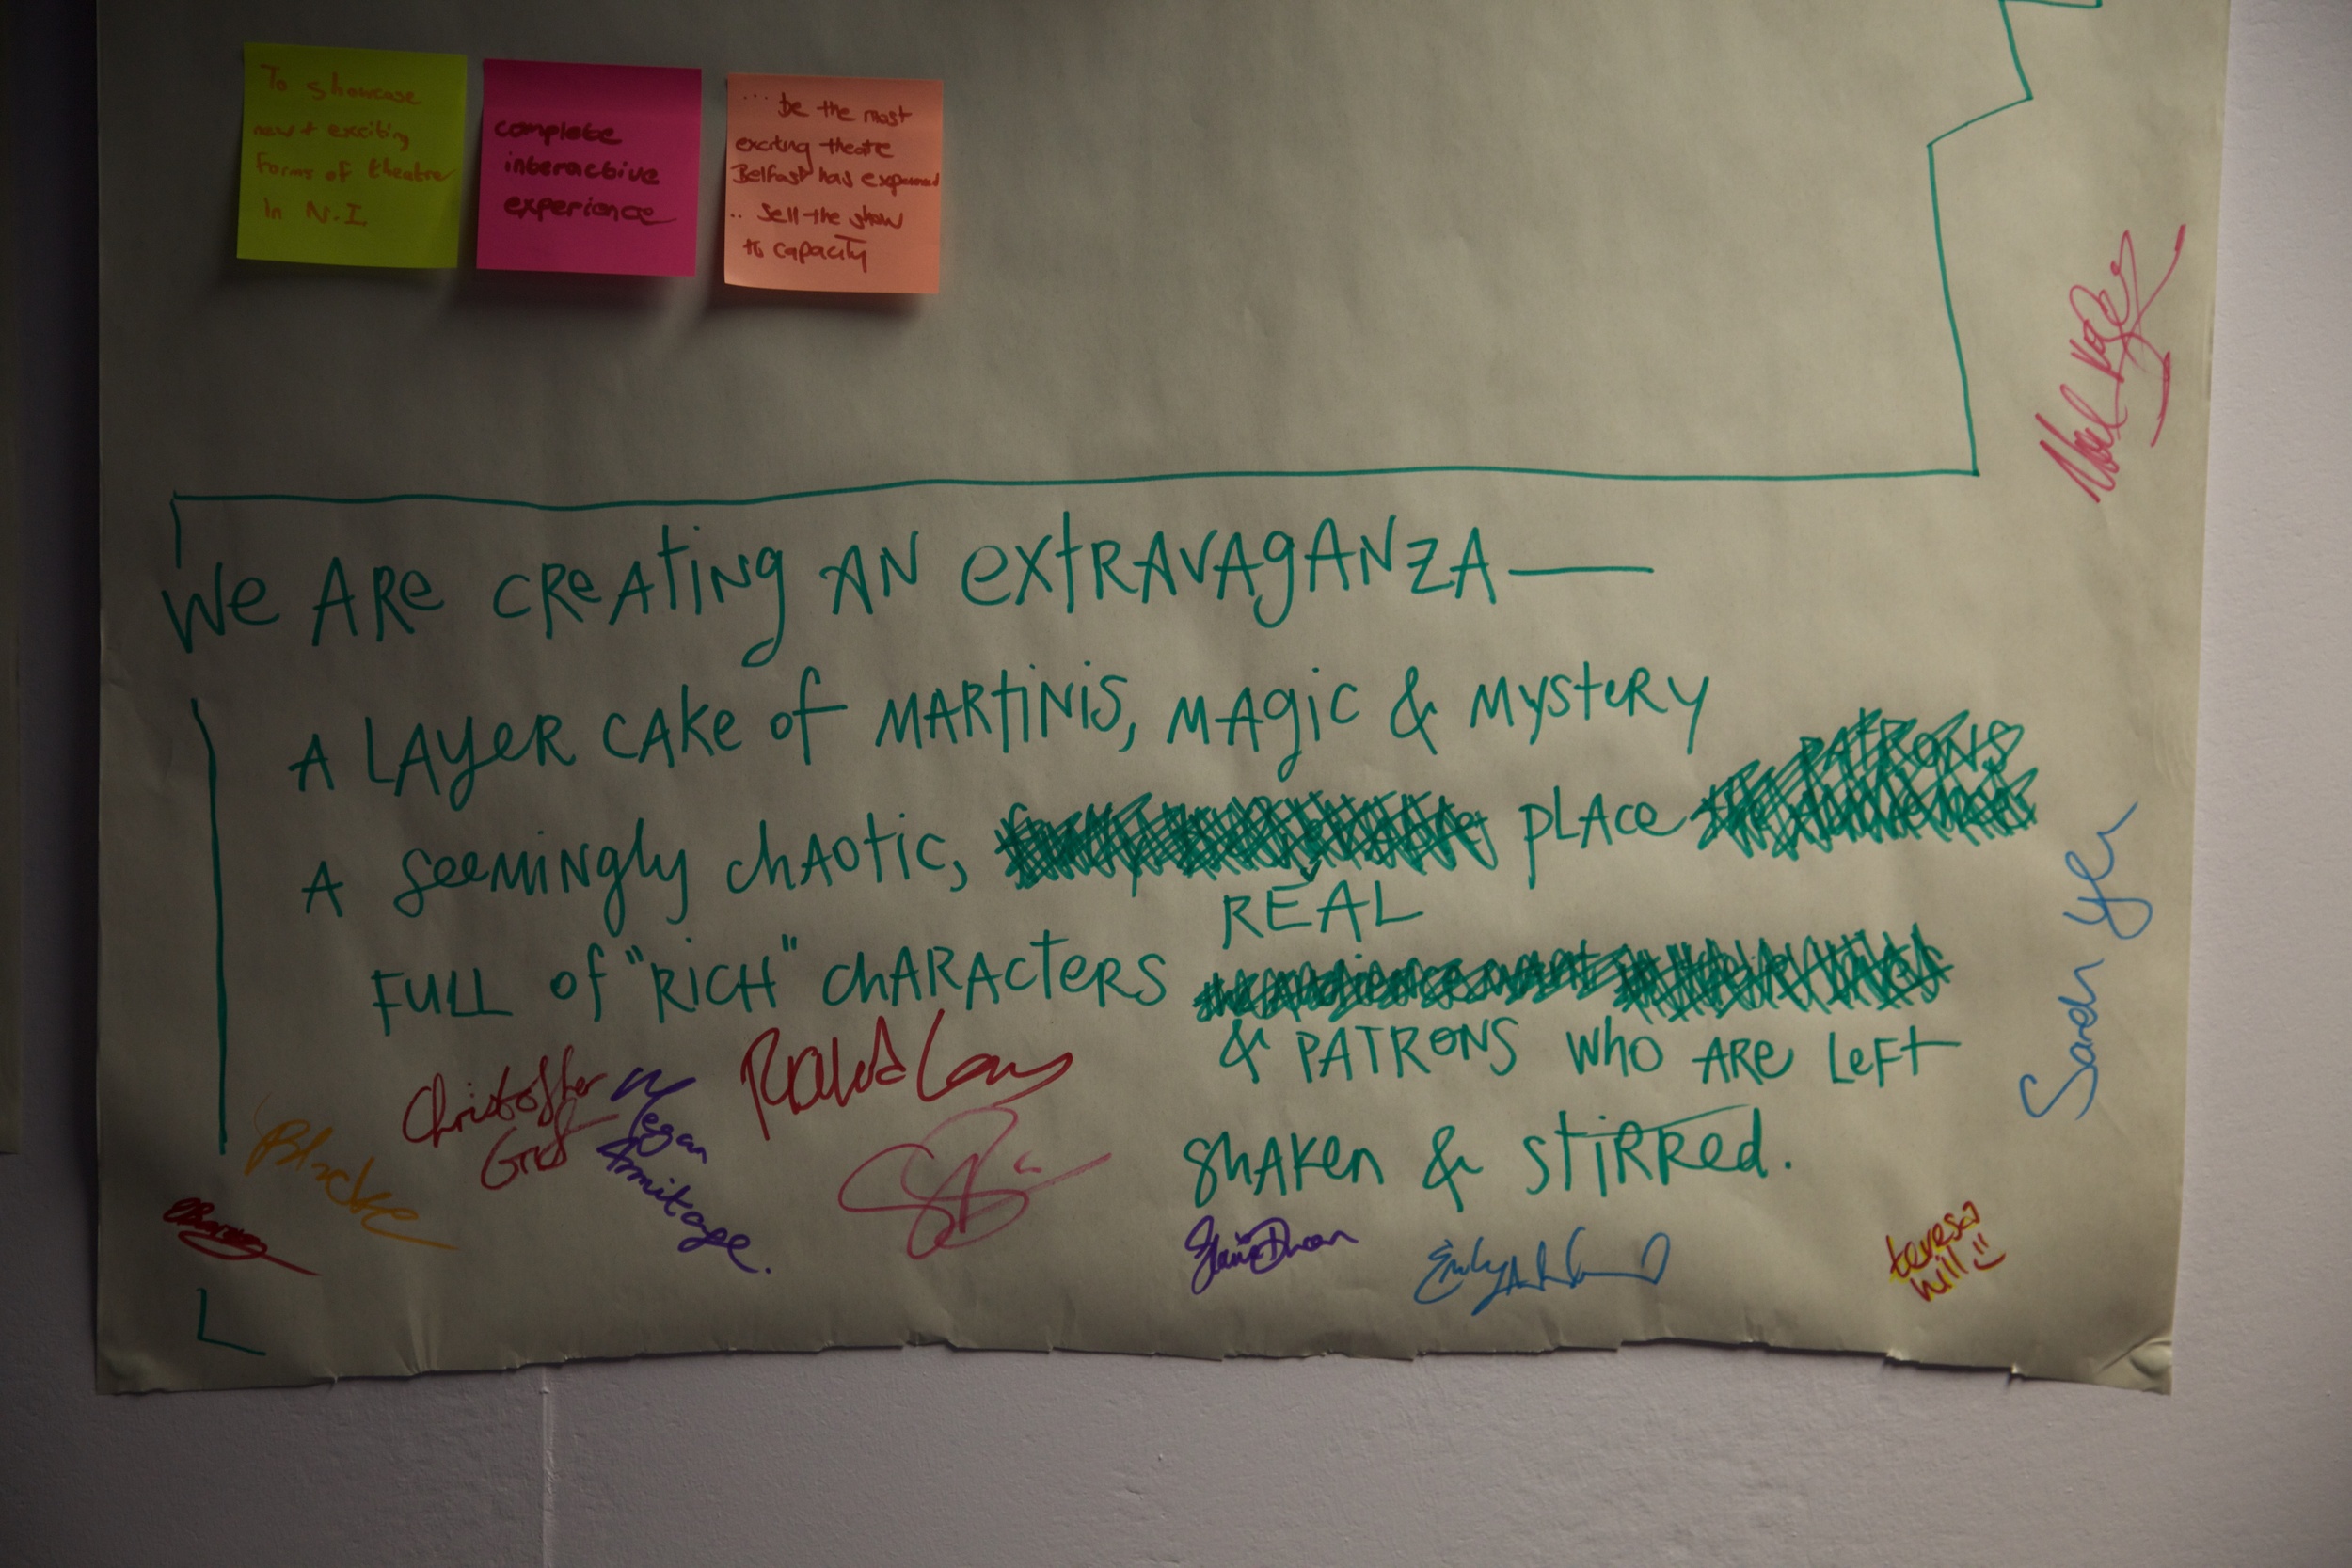 To showcase
new + exciting
forms of theatre
in N.I
complete
interactive
experience
... be the most
exciting theatre
Belfast has experienced
.. sell the show
to capacity
WE ARE CREATING AN EXTRAVAGANZA —
A LAYER CAKE OF MARTINIS, MAGIC & MYSTERY
PATRONS
A SEEMINGLY CHAOTIC, PLACE
REAL
FULL OF "RICH" CHARACTERS
& PATRONS WHO ARE LEFT
SHAKEN & STIRRED.
Christopher
Grant
Megan
Armitage.
Blacke
teresa
hill
Sarah